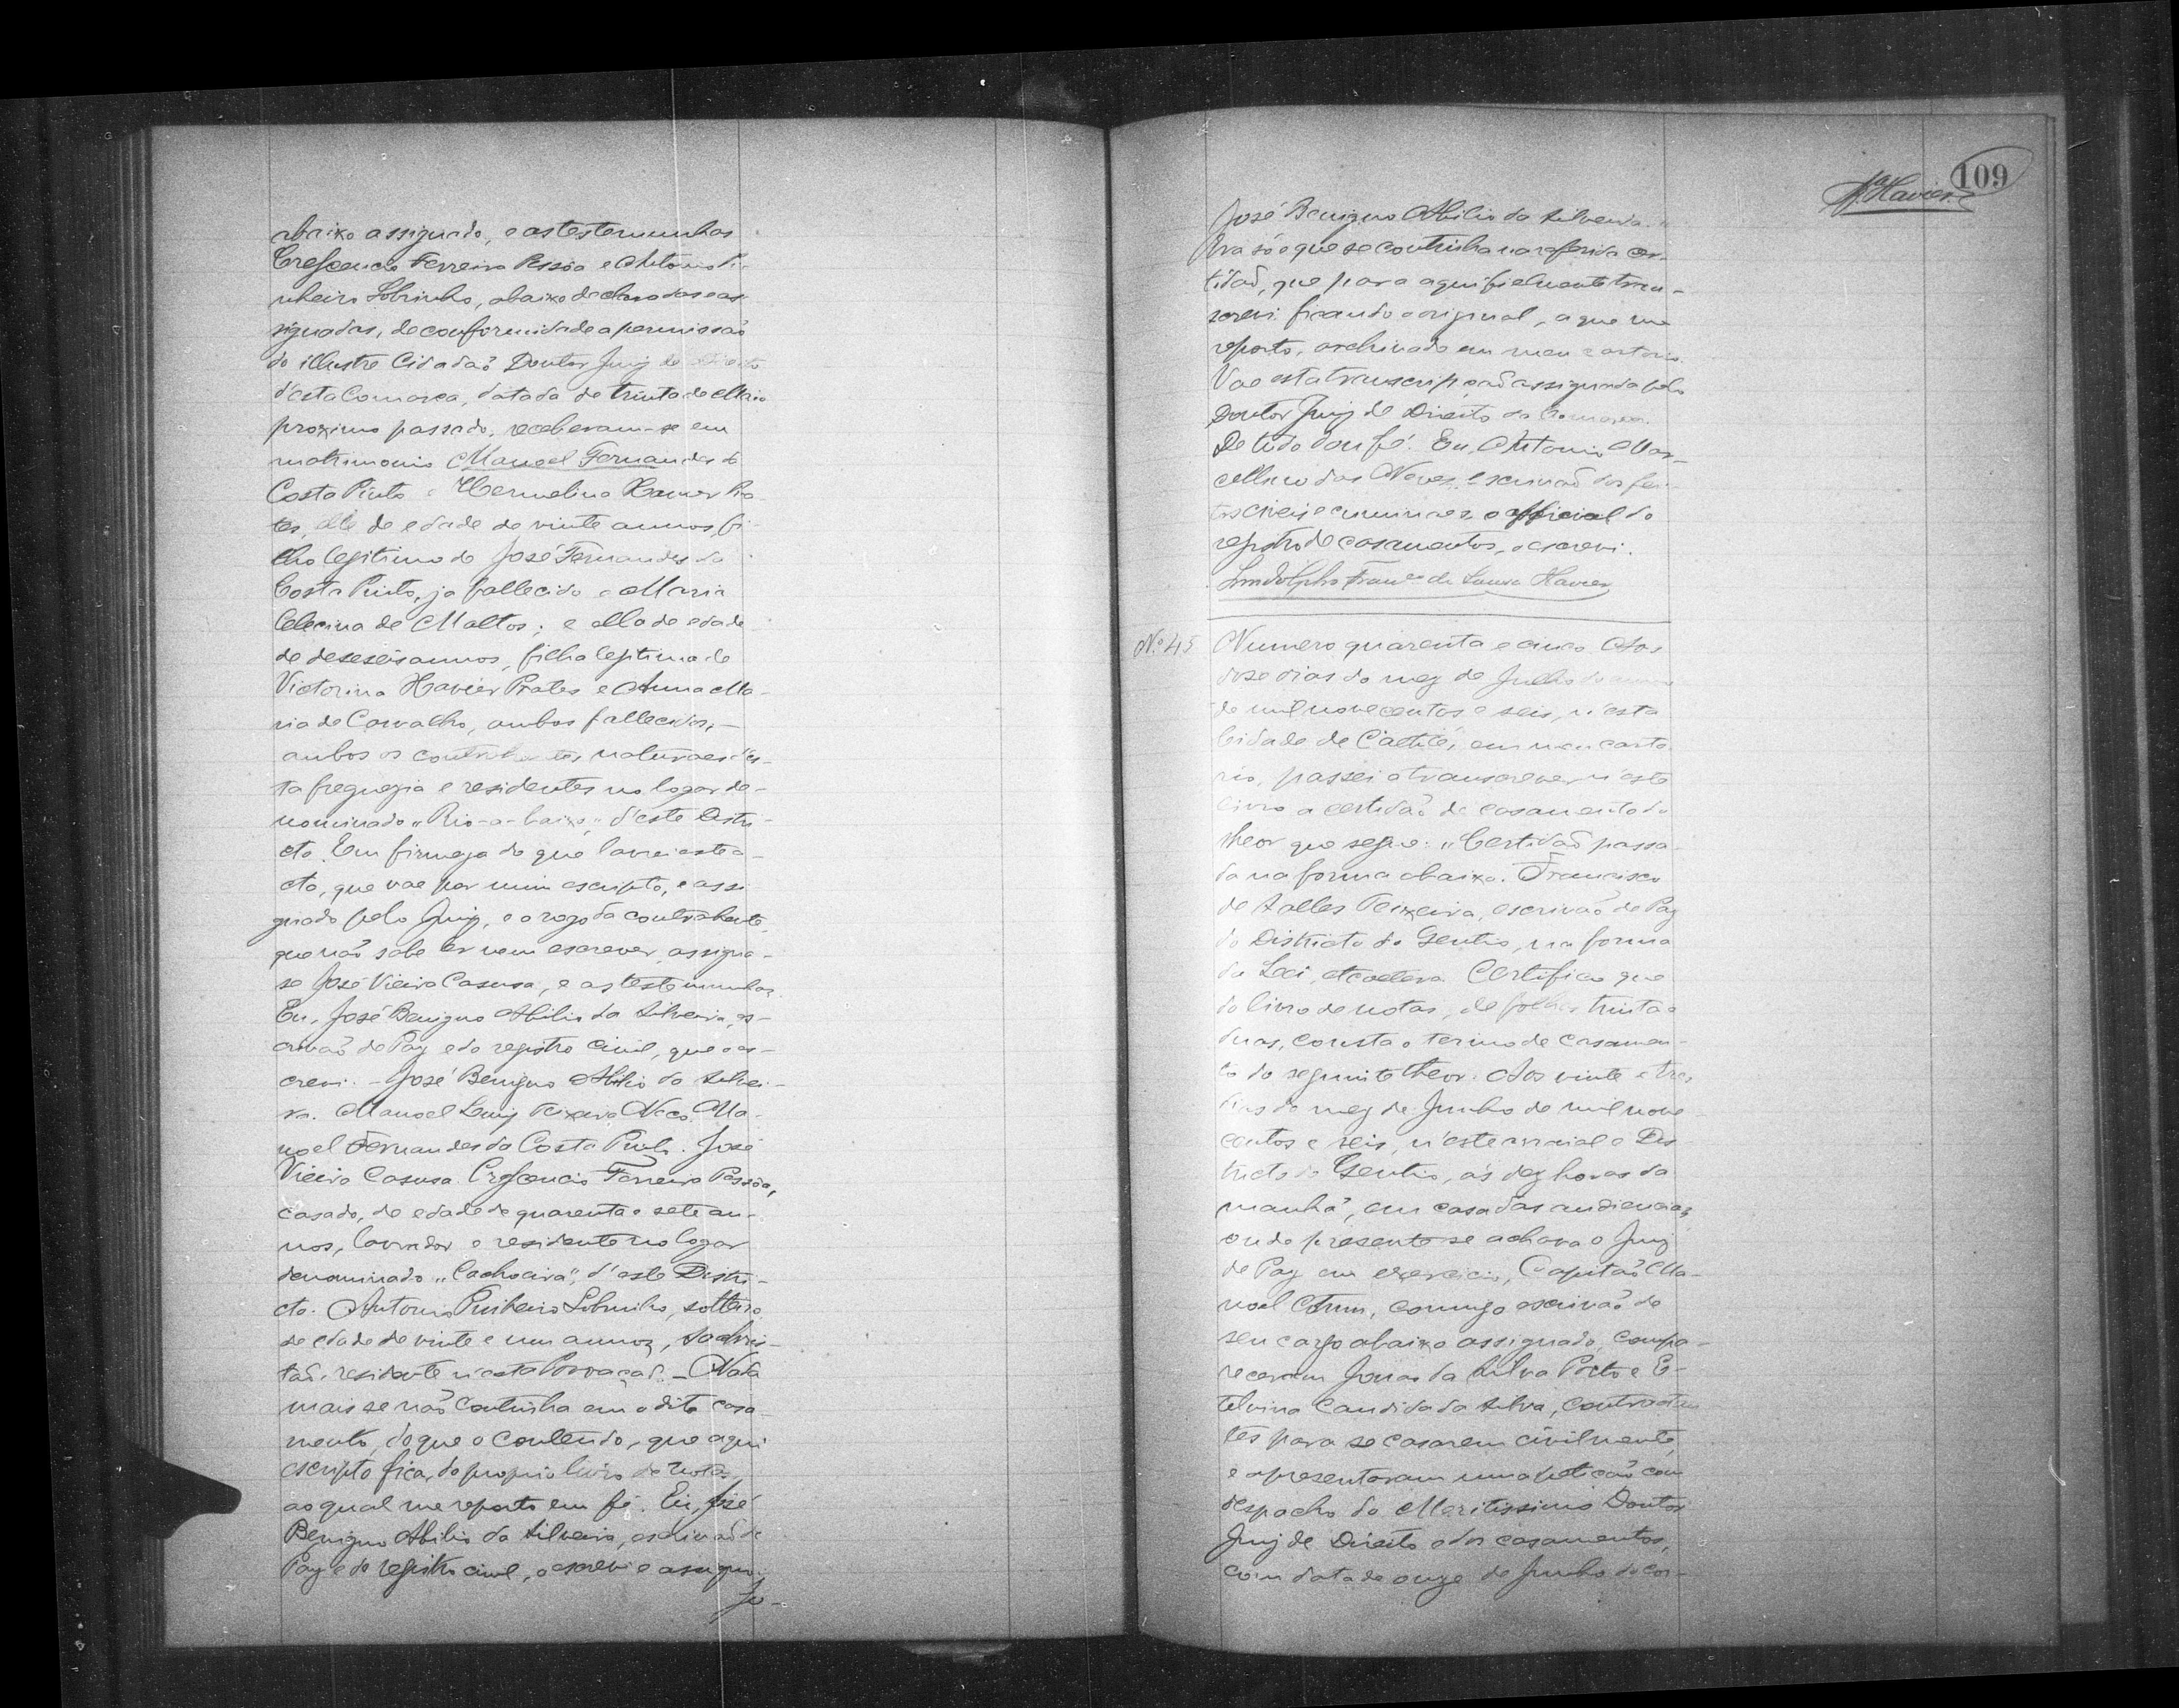 abaixo assignado, e as testemunhas
Crescencio Ferreira Pessôa e Antonio Pi-
nheiro Sobrinho, abaixo declaradas e as-
signadas, de conformidade a permissão
do illustre Cidadaõ Doutor Juiz de Direito
d'esta Comarca, datada de trinta de Maio
proximo passado, receberam-se em
matrimonio Manoel Fernandes da
Costa Pinto e Hermelina Xavier Pra-
tes, elle de edade de vinte annos, fi-
lho legitimo de José Fernandes da
Costa Pinto, ja fallecido e Maria
de Mattos; e ella de edade
de deseseis annos, filha legitima de
Victorino Xavier Prates e Anna Ma-
ria de Carvalho, ambos fallecidos,-
ambos os contrahentes, naturaes d'es-
ta freguezia e residentes no logar de-
nominado "Rio-a-baixo", d'este Distri-
cto. Em firmeza do que lavrei este a-
cto, que vae por mim escripto, e assi-
gnado pelo Juiz, e o rogo da contrahente,
que não sabe ler nem escrever, assigna-
se José Vieira Casusa, e as testemunhas.
Eu, José Benigno Abilio da Silveira, es-
crivaõ de Paz e do registro civil, que o es-
crevi. - José Benigno Abilio da Silvei-
ra. Manoel Luiz Teixeira Ma-
noel Fernandes da Costa Pinto. José
Vieira Casusa. Crescencio Ferreira Pessôa,
casado, de edade de quarenta e sete an-
nos, lavrador e residente no logar
denominado "Cachoeira", d'este Distri-
cto. Antonio Pinheiro Sobrinho, solteiro
de edade de vinte e um annos, sachris-
taõ, residente n'esta Povoaçaõ. - Nada
mais se não continha em o dito casa-
mento, do que o contendo, que aqui
escripto fica, do proprio livro de notas,
ao qual me reporto em fé. Eu, José
Benigno Abilio da Silveira, escrivaõ de
Paz e do registro civil, o escrevi e assigno.
Jo-
109
Xavier
José Benigno Abilio da Silveira."
Era só o que se continha na referida cer-
tidaõ, que para aqui fielmente trans-
crevi ficando o original, a que me
reporto, archivado em meu cartorio.
Vae esta transcripçaõ assignada pelo
Doutor Juiz de Direito da Comarca.
De tudo dou fé. Eu, Antonio Mar-
cellino das Neves, escrivaõ dos fei-
tos civeis e criminaes e official do
registro de casamentos, o escrevi.
Lindolpho Franco de Souza Xavier
Nº 45 Numero quarenta e cinco Aos
dose dias do mez de Julho do anno
de mil nove centos e seis, n'esta
Cidade de Caetité, em meu carto-
rio, passei a transcrever n'este
livro a certidaõ de casamento do
theor que segue: "Certidaõ passa-
da na forma abaixo. Francisco
de Salles Teixeira, escrivaõ de Paz
do Districto do Gentio, na forma
da Lei, etcoetera. Certifico que
do livro de notas, de folhas trinta e
duas, consta o termo de casamen-
to do seguinte theor. Aos vinte e tres
dias do mez de Junho de mil nove
centos e seis, n'este arraial e Dis-
tricto do Gentio, ás dez horas da
manhã, em casa das audiencias
onde presente se achava o Juiz
de Paz em exercicio, Capitaõ Ma-
noel Cotrim, comigo escrivaõ de
seu cargo abaixo assignado, compa-
receram Jonas da Silva Porto e E-
telvina Candida da Silva, contractan-
tes para se casarem civilmente,
e apresentaram uma petiçaõ com
despacho do Meritissimo Doutor
Juiz de Direito e dos casamentos,
com data de onze de Junho do cor-